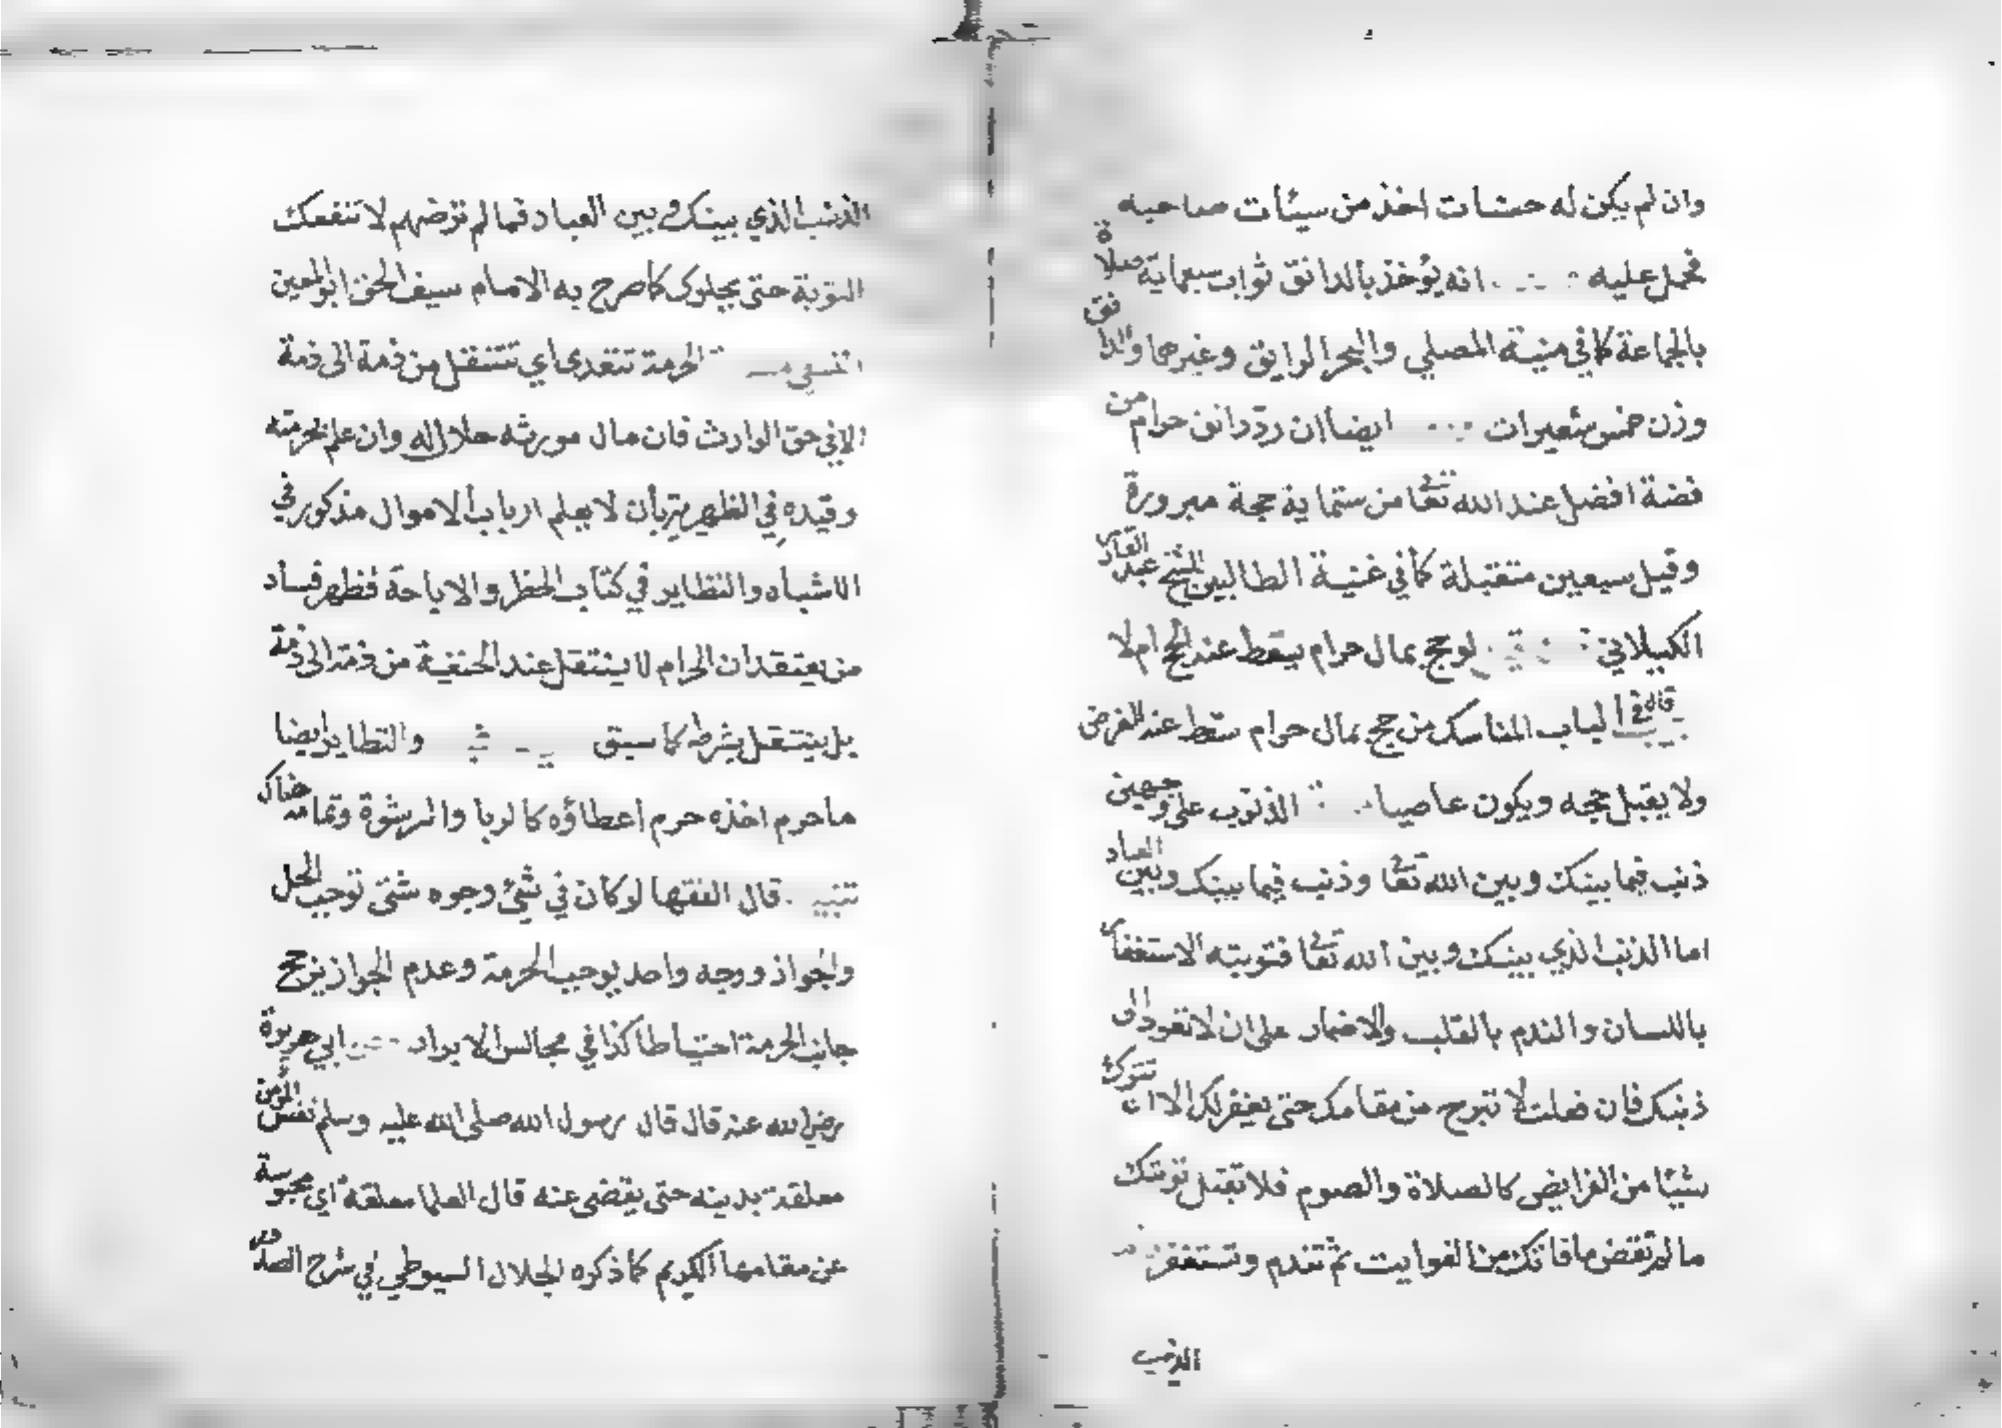 وان لم يكن له حسنات اخذ من سيئات صاحبه
فحمل عليه انه يؤخذ بالدانق ثواب سبعماية صلاة
بالجماعة كما في منية المصلي والبحر الرايق وغيرهما والدانق
وزن خمس شعيرات ايضا ان رد دانق حرام من
فضة افضل عند الله تعا من ستماية حجة مبرورة
وقيل سبعين متقبلة كما في غنية الطالبين للشيخ عبد القادر
الكيلاني لو حج بمال حرام يسقط عند الحج ام لا
قال في لباب المناسك من حج بمال حرام سقط عند الفرض
ولا يقبل حجه ويكون عاصيا الذنوب على وجهين
ذنب فيما بينك وبين الله تعا وذنب فيما بينك وبين العباد
اما الذنب الذي بينك وبين الله تعا فتوبته الاستغفار
باللسان والندم بالقلب والاضمار على ان لا تعود الى
ذنبك فان فعلت لا تبرح من مقامك حتى يغفر لك الا ان تترك
شيئا من الفرايض كالصلاة والصوم فلا تقبل توبتك
ما لم تقض ما فاتك من الفوايت ثم تندم وتستغفر
الذنب
الذنب الذي بينك وبين العباد فما لم ترضهم لا تنفعك
التوبة حتى يحلوك كما صرح به الامام سيف الحق ابو المعين
النسفي الحرمة تتعدى اي تنتقل من ذمة الى ذمة
الا في حق الوارث فان مال مورثه حلال له وان علم بحرمته
وقيده في الظهيرية بأن لا يعلم ارباب الاموال مذكور في
الاشباه والنظاير في كتاب الحظر والاباحة فظهر فساد
من يعتقد ان الحرام لا ينتقل عند الحنفية من ذمة الى ذمة
بل ينتقل بشرطه كما سبق والنظاير ايضا
ما حرم اخذه حرم اعطاؤه كالربا والرشوة وتمامه هناك
تنبيه قال الفقها لو كان في شيئ وجوه شتى توجب الحل
والجواز ووجه واحد يوجب الحرمة وعدم الجواز يرجح
جانب الحرمة احتياطا كذا في مجالس الابرار عن ابي هريرة
رضي الله عنه قال قال رسول الله صلى الله عليه وسلم نفس المؤمن
معلقة بدينه حتى يقضى عنه قال العلما معلقة اي محبوسة
عن مقامها الكريم كما ذكره الجلال السيوطي في شرح الصدور